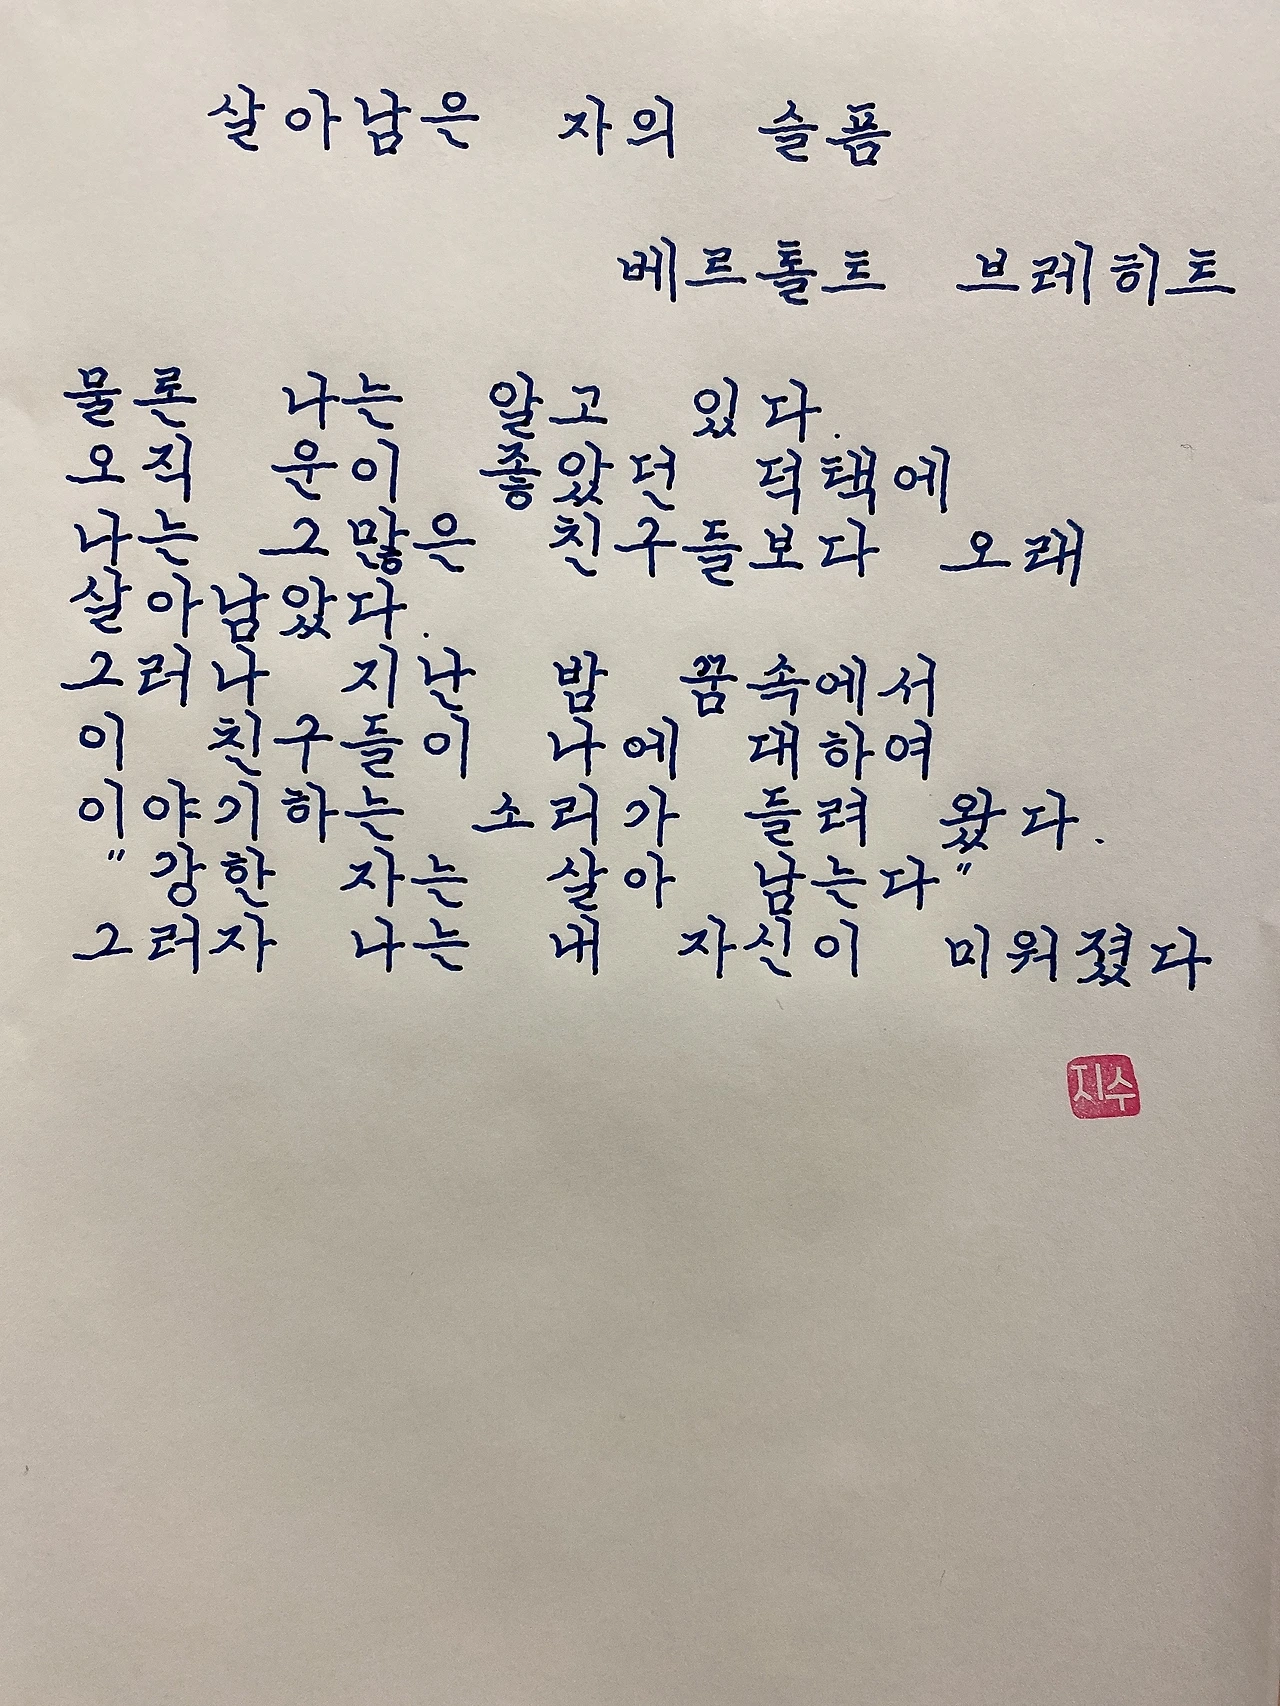 살아남은 자의 슬픔
베르톨트 브레히트
물론 나는 알고 있다.
오직 운이 좋았던 덕택에
나는 그많은 친구들보다 오래
살아남았다.
그러나 지난 밤 꿈속에서
이 친구들이 나에 대하여
이야기하는 소리가 들려 왔다.
"강한 자는 살아 남는다"
그러자 나는 내 자신이 미워졌다
지수